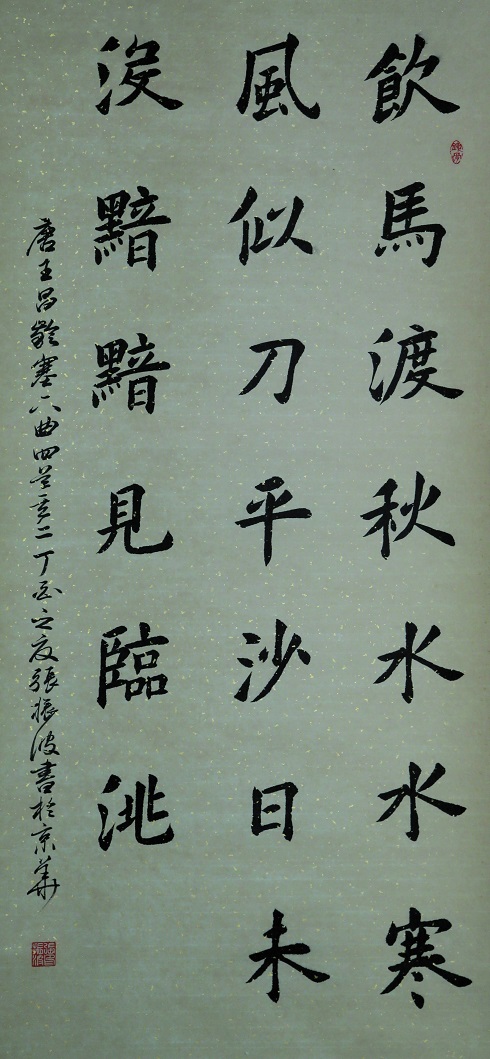 飲馬渡秋水水寒
風似刀平沙日未
沒黯黯見臨洮
唐王昌齡塞下曲四首其二丁酉之夏張振波書於京華